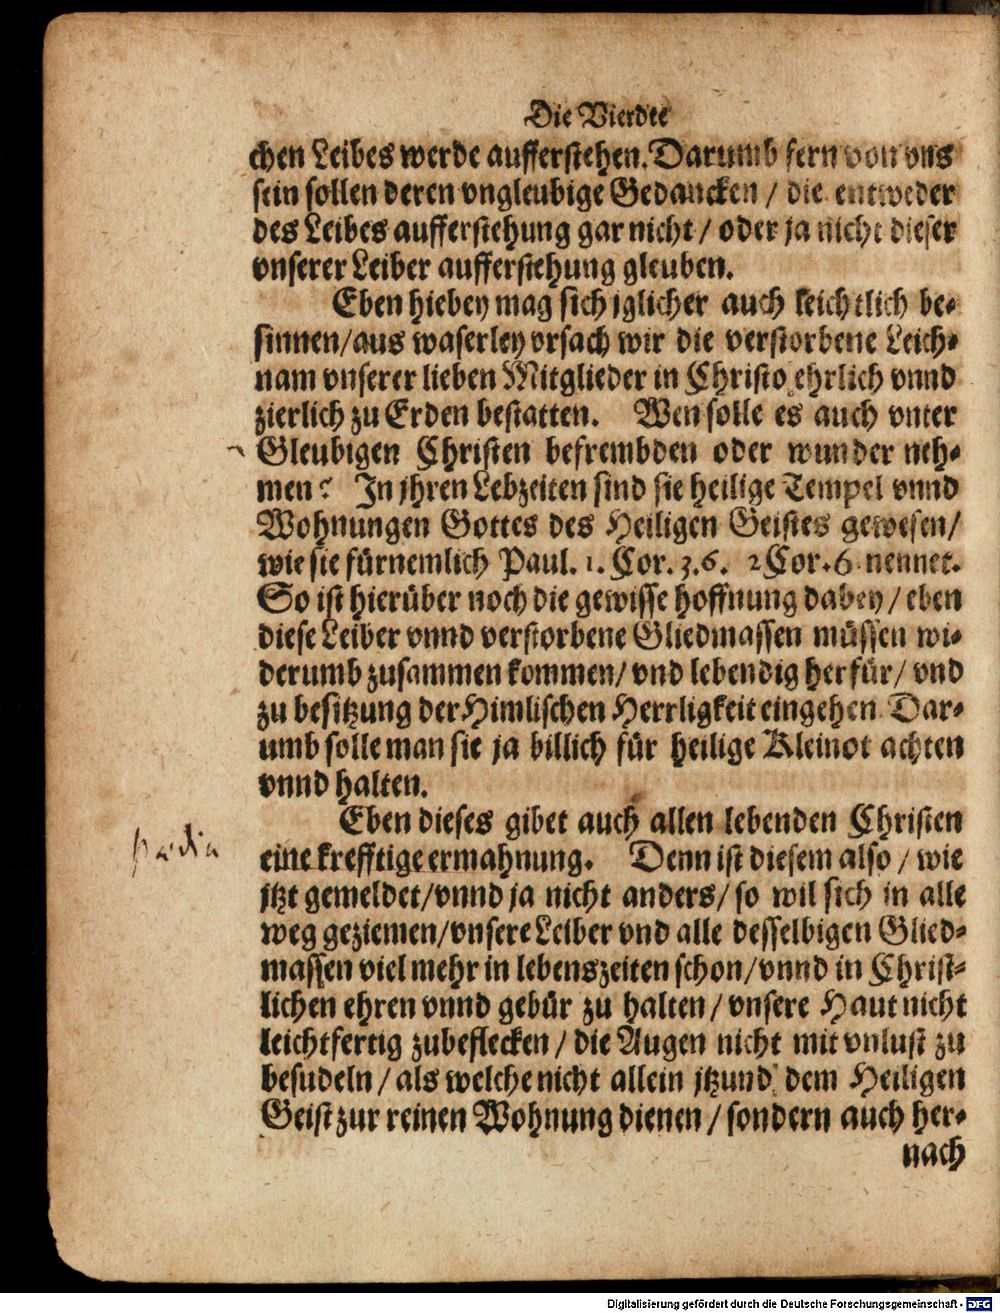 Die Vierdte
chen Leibes werde aufferstehen. Darumb fern von vns
sein sollen deren vngleubige Gedancken / die entweder
des Leibes aufferstehung gar nicht / oder ja nicht dieser
vnserer Leiber aufferstehung gleuben.
Eben hiebey mag sich jglicher auch leichtlich be-
sinnen/aus waserley vrsach wir die verstorbene Leich-
nam vnserer lieben Mitglieder in Christo ehrlich vnnd
zierlich zu Erden bestatten. Wen solle es auch vnter
Gleubigen Christen befrembden oder wunder neh-
men? In jhren Lebzeiten sind sie heilige Tempel vnnd
Wohnungen Gottes des Heiligen Geistes gewesen/
wie sie fürnemlich Paul. 1. Cor. 3.6. 2 Cor. 6 nennet.
So ist hierüber noch die gewisse hoffnung dabey / eben
diese Leiber vnnd verstorbene Gliedmassen müssen wi-
derumb zusammen kommen/ vnd lebendig herfür/ vnd
zu besitzung der Himlischen Herrligkeit eingehen Dar-
umb solle man sie ja billich für heilige Kleinot achten
vnnd halten.
Eben dieses gibet auch allen lebenden Christen
eine krefftige ermahnung. Denn ist diesem also / wie
jtzt gemeldet/vnnd ja nicht anders/ so wil sich in alle
weg geziemen/vnsere Leiber vnd alle desselbigen Glied-
massen viel mehr in lebenszeiten schon/vnnd in Christ-
lichen ehren vnnd gebür zu halten / vnsere Haut nicht
leichtfertig zubeflecken / die Augen nicht mit vnlust zu
besudeln / als welche nicht allein jtzund dem Heiligen
Geist zur reinen Wohnung dienen / sondern auch her-
nach
Digitalisierung gefördert durch die Deutsche Forschungsgemeinschaft - DFG